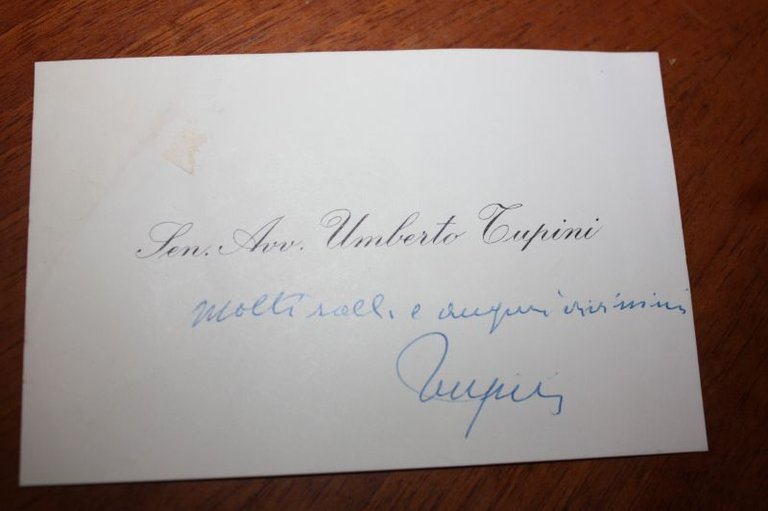 Sen. Avv. Umberto Tupini
Molti rall. e auguri vivissimi
Tupini